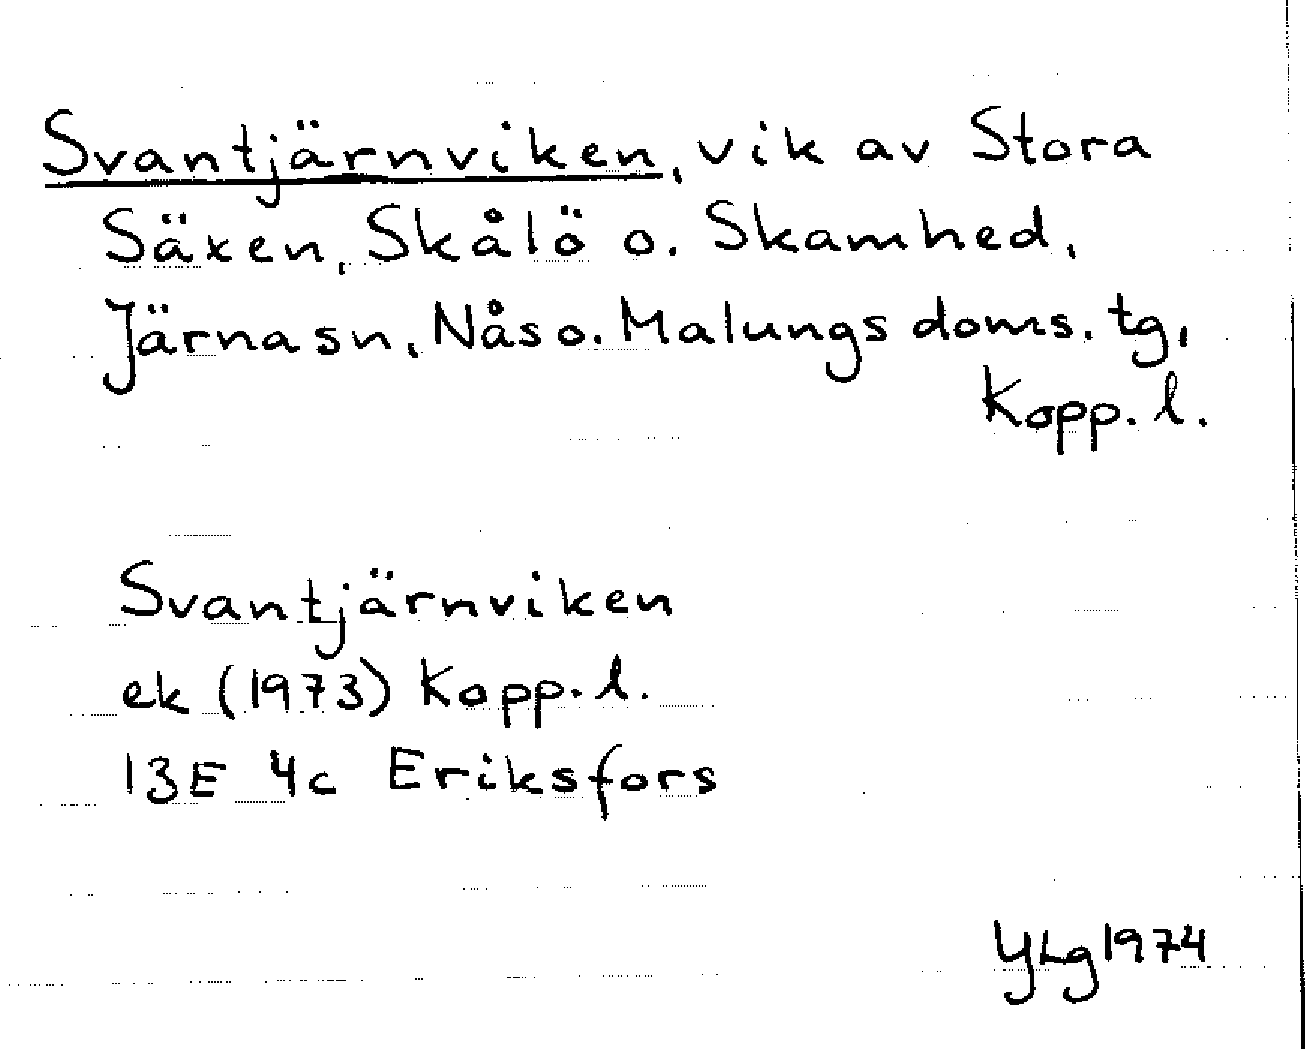 Svantjärnviken, vik av Stora
Säxen, Skålö o. Skamhed,
Järna sn, Nås o. Malungs doms. tg,
Kopp. l.
Svantjärnviken
ek (1973) Kopp. l.
13E 4c Eriksfors
YLg 1974